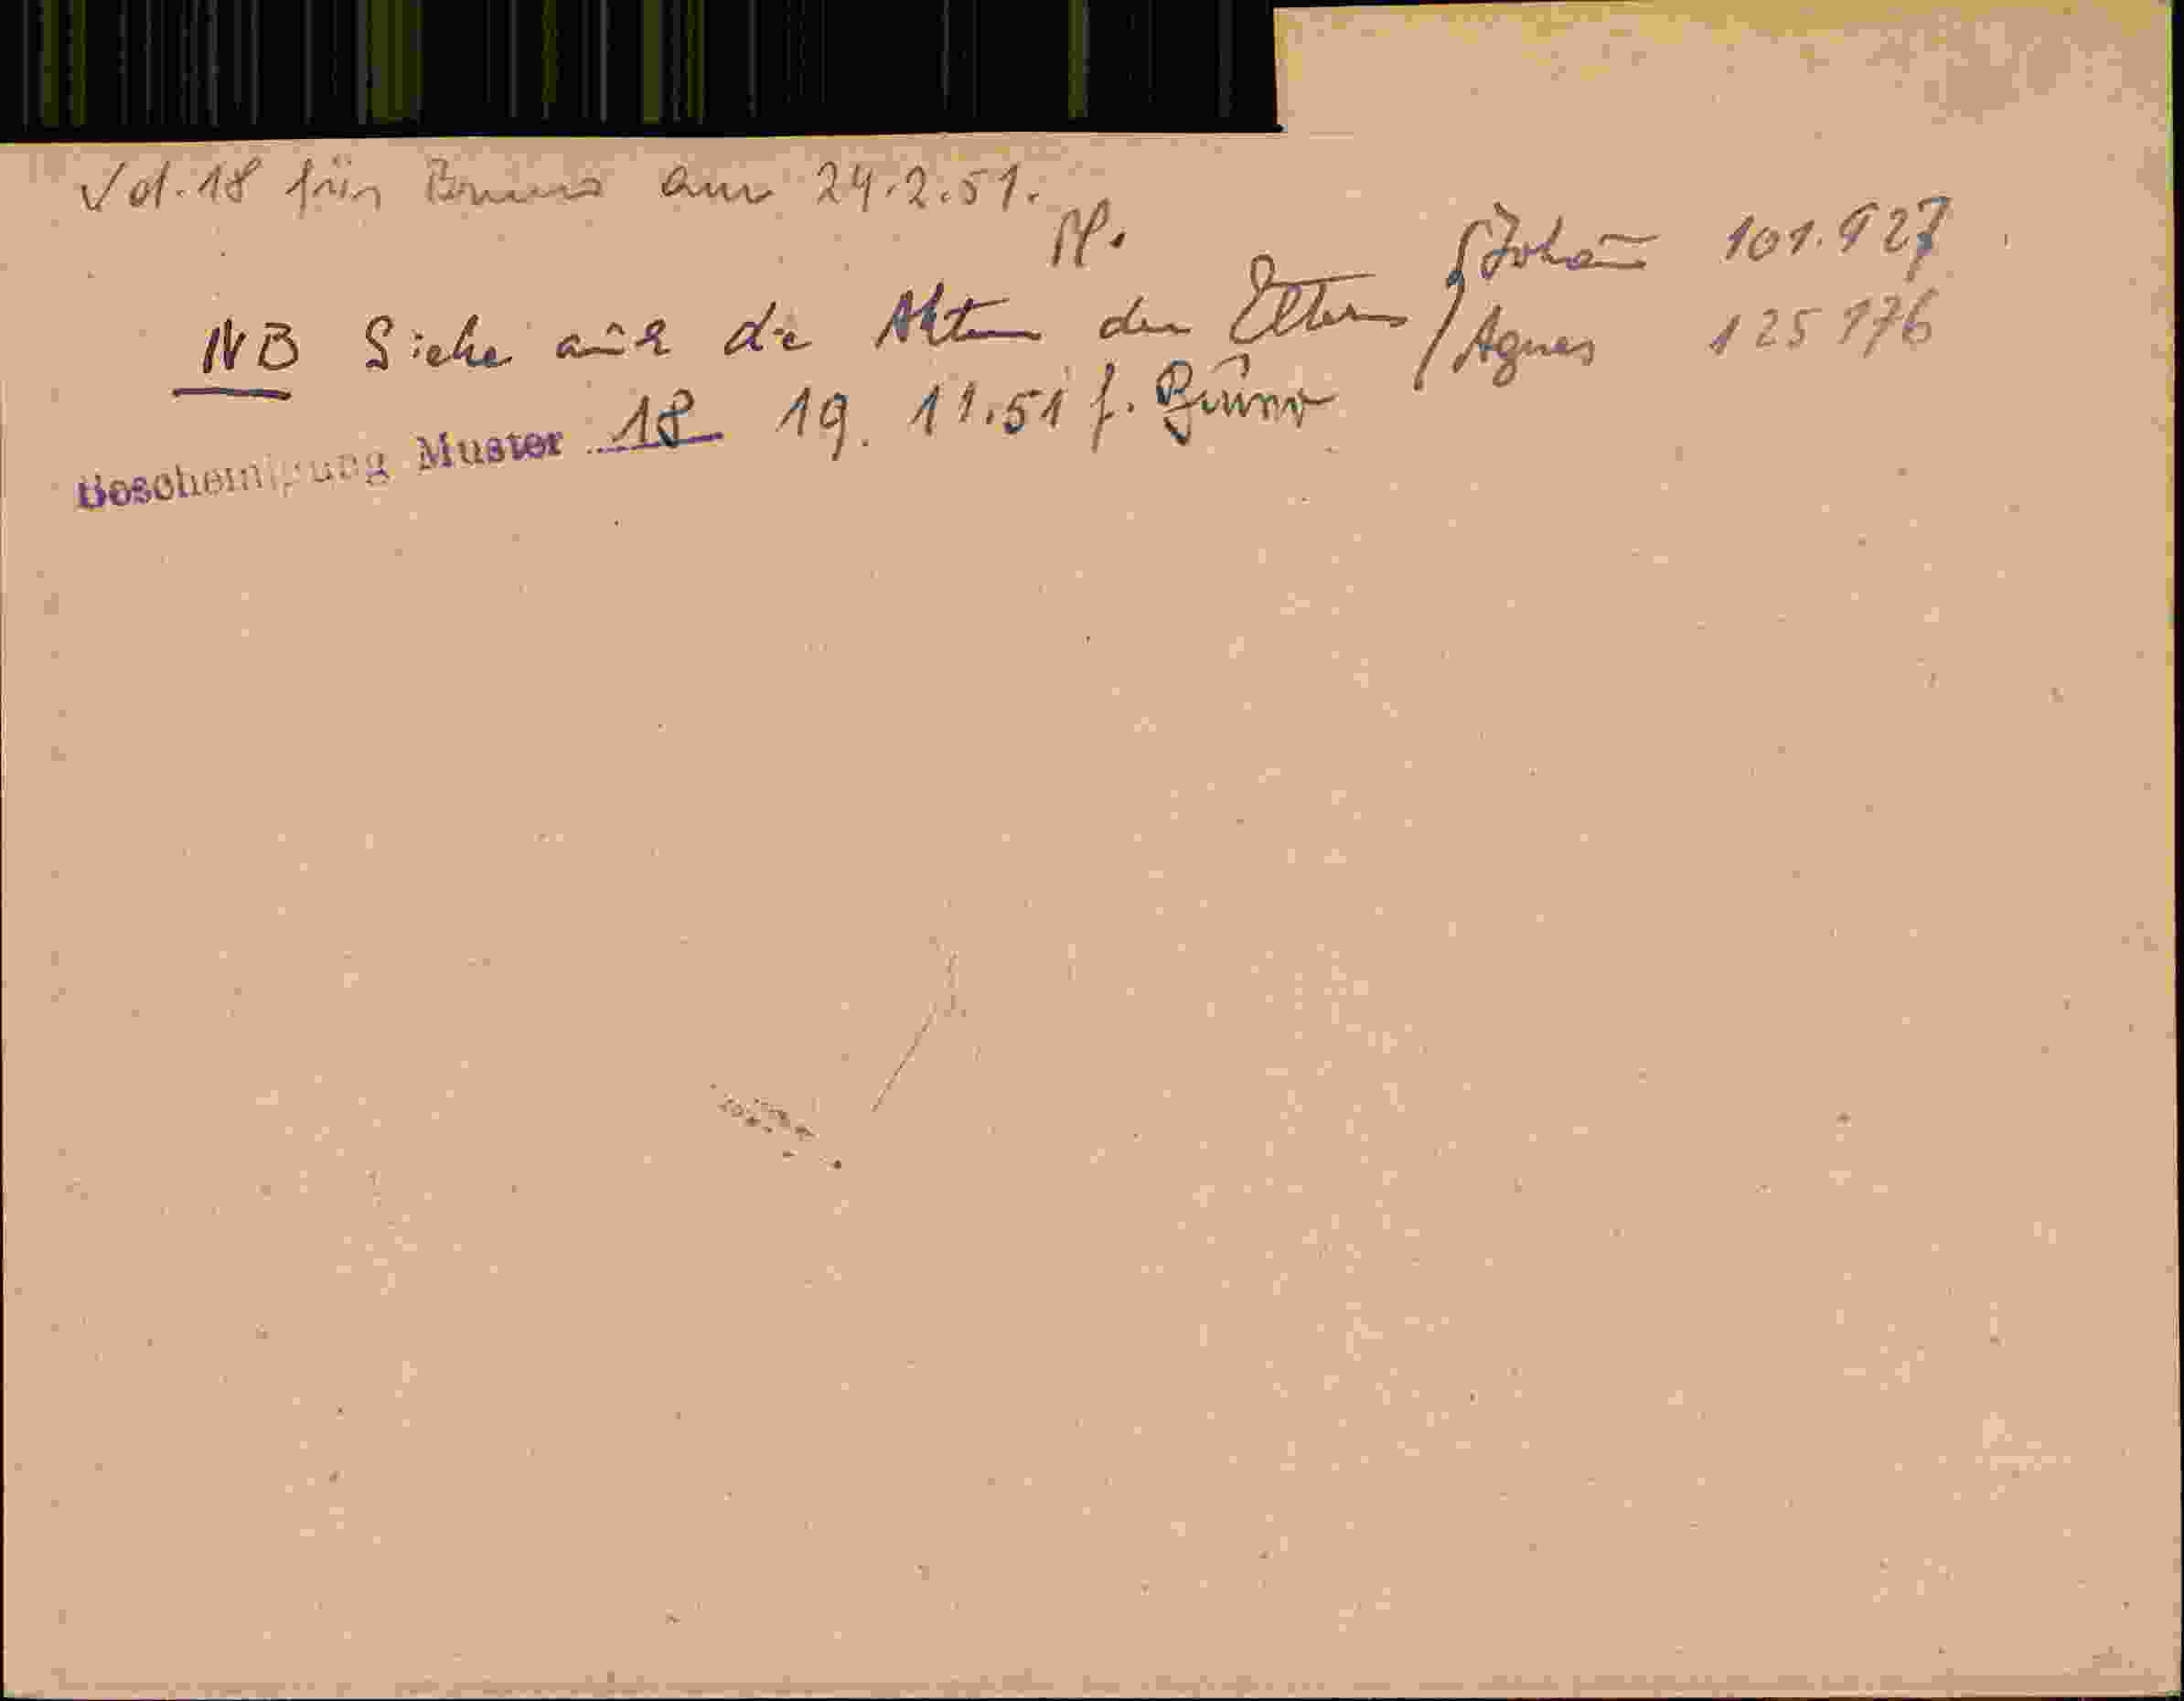 Vol. 18 für Bruno am 24.2.51.
NB Siehe auch die Akten der Eltern { Johann 101.927
Agnes 125 176
Bescheinigung Muster 18 19. 11.51 f. Bruno